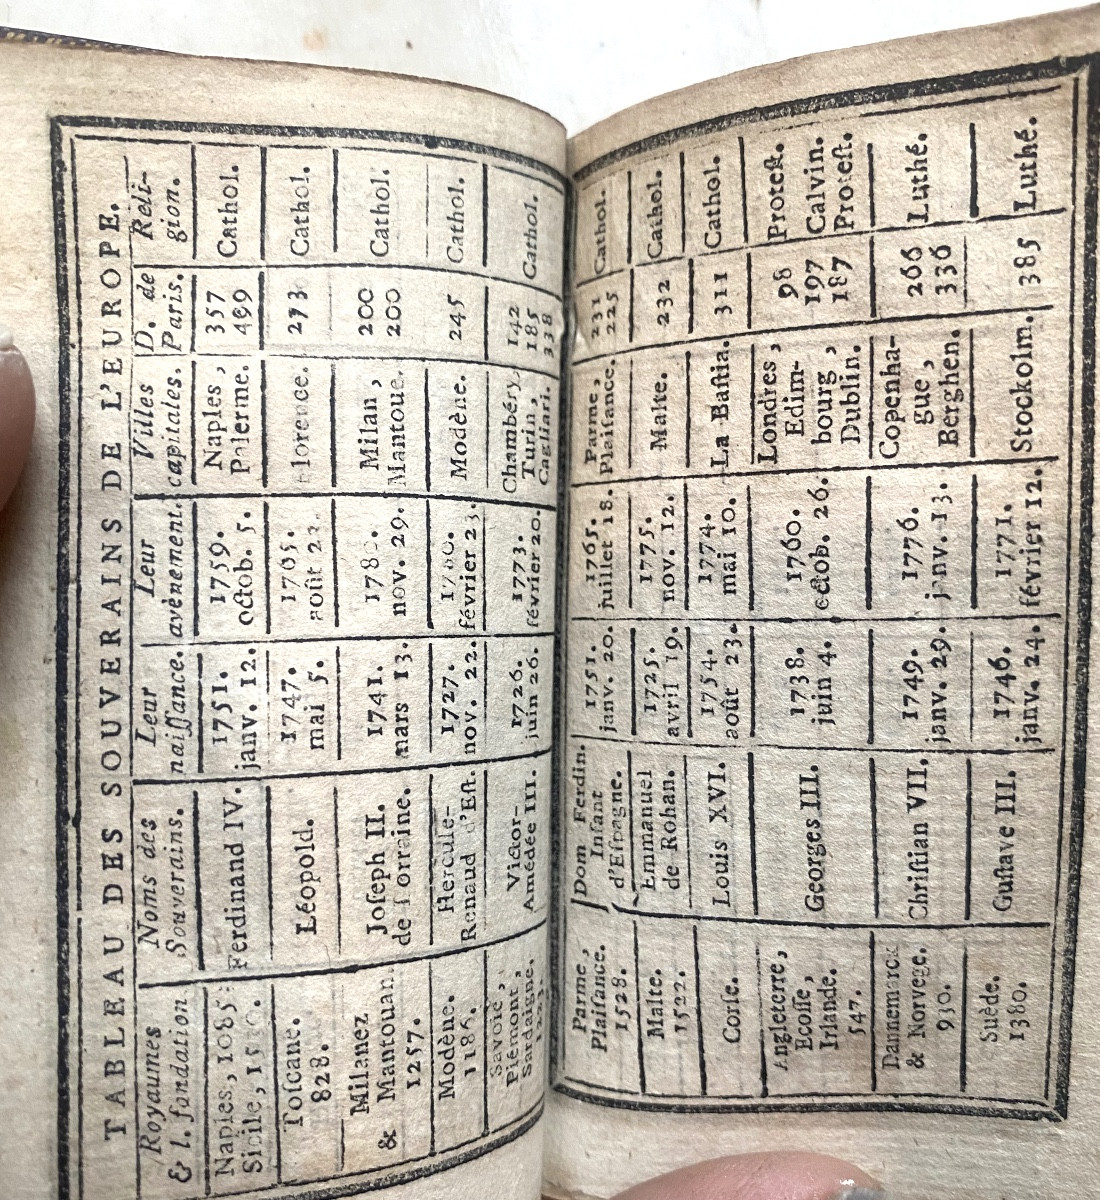 TABLEAU DES SOUVERAINS DE L'EUROPE.
Royaumes & l. fondation
Noms des Souverains.
Leur naiſſance.
Leur avènement.
Villes capitales.
D. de Paris.
Reli-gion.
Naples, 1085
Sicile,
Ferdinand IV.
1751.
janv. 12.
1759.
octob. 5.
Naples,
Palerme.
357
469
Cathol.
Toſcane.
828.
Léopold.
1747.
mai 5.
1765.
août
Florence.
273
Cathol.
Milanez
& Mantouan.
1257.
Joſeph II.
de Lorraine.
1741.
mars 13.
nov. 29.
Milan,
Mantoue.
200
200
Cathol.
Modène.
Hercule-
Renaud d'Eſt.
1727.
nov. 22.
février 23.
Modène.
245
Cathol.
Savoie,
Piémont,
Sardaigne,
Victor-
Amédée III.
1726.
juin 26.
1773.
février 20.
Chambéry,
Turin,
Cagliari.
142
185
338
Cathol.
Parme,
Plaiſance.
1528.
Dom Ferdin.
Infant
d'Eſpagne.
1751.
janv. 20.
1765.
juillet 18.
Parme,
Plaiſance.
231
225
Cathol.
Malte.
1522.
Emmanuel
de Rohan.
1725.
avril 19.
1775.
nov. 12.
Malte.
232
Cathol.
Corſe.
Louis XVI.
1754.
août 23.
1774.
mai 10.
La Baſtia.
311
Cathol.
Angleterre,
Ecoſſe,
Irlande.
547.
Georges III.
1738.
juin 4.
1760.
octob. 26.
Londres,
Edim-
bourg,
Dublin.
98
197
187
Proteſt.
Calvin.
Proteſt.
Dannemarck
& Norvege.
930.
Chriſtian VII.
1749.
janv. 29.
1776.
janv. 13.
Copenha-
gue,
Berghen.
266
336
Luthé.
Suède.
1380.
Guſtave III.
1746.
janv. 24.
1771.
février 12.
Stockolm.
385
Luthé.